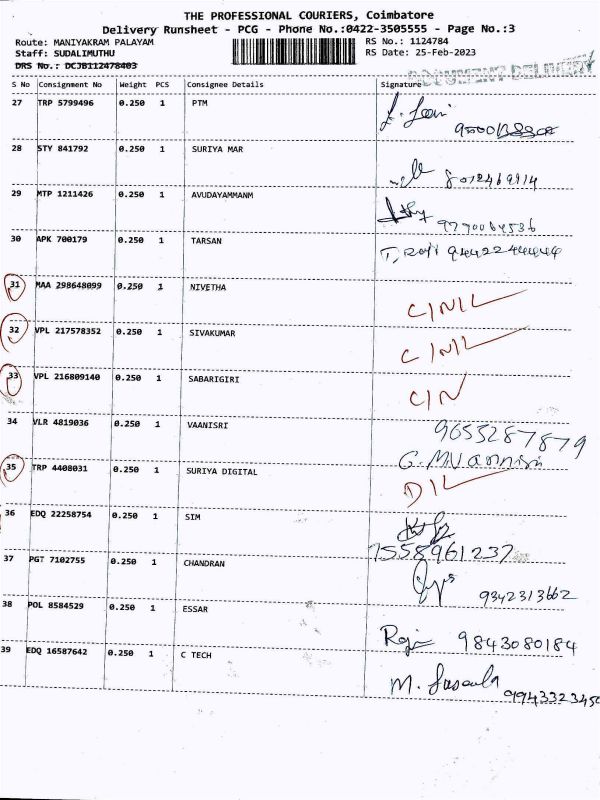 THE PROFESSIONAL COURIERS, Coimbatore
Delivery Runsheet - PCG - Phone No.:0422-3505555 - Page No.:3
Route: MANIYAKRAM PALAYAM RS No.: 1124784
Staff: SUDALIMUTHU RS Date: 25-Feb-2023
DRS No.: DCJB112478403 DOCUMENT DELIVERY
S No Consignment No Weight PCS Consignee Details Signature
27 TRP 5799496 0.250 1 PTM
28 STY 841792 0.250 1 SURIYA MAR
29 MTP 1211426 0.250 1 AVUDAYAMMANM
30 APK 700179 0.250 1 TARSAN
31 MAA 298648099 0.250 1 NIVETHA C/N/L
32 VPL 217578352 0.250 1 SIVAKUMAR C/N/L
33 VPL 216809140 0.250 1 SABARIGIRI C/N
34 VLR 4819036 0.250 1 VAANISRI 9655287879
35 TRP 4408031 0.250 1 SURIYA DIGITAL D/L
36 EDQ 22258754 0.250 1 SIM
7558961237
37 PGT 7102755 0.250 1 CHANDRAN
9342313662
38 POL 8584529 0.250 1 ESSAR
9843080184
39 EDQ 16587642 0.250 1 C TECH
M. 9943323450